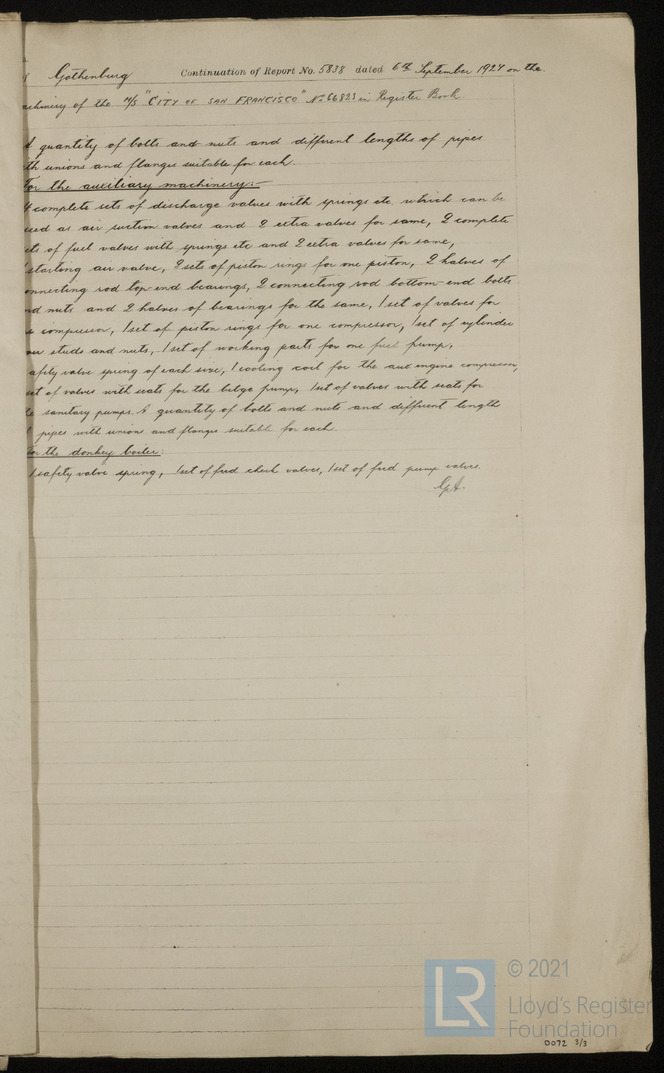 Gothenburg Continuation of Report No. 5838 dated 6th September 1927 on the
achinery of the M/S "CITY OF SAN FRANCISCO" No 66823 in Register Book
A quantity of bolts and nuts and different lengths of pipes
th unions and flanges suitable for each.
For the auxiliary machinery:-
4 complete sets of discharge valves with springs etc which can be
sed as air suction valves and 2 extra valves for same, 2 complete
ets of fuel valves with springs etc and 2 extra valves for same,
1 starting air valve, 2 sets of piston rings for one piston, 2 halves of
onnecting rod top-end bearings, 2 connecting rod bottom-end bolts
nd nuts and 2 halves of bearings for the same, 1 set of valves for
compressor, 1 set of piston rings for one compressor, 1 set of cylinder
studs and nuts, 1 set of working parts for one fuel pump,
afety valve spring of each size, 1 cooling coil for the aux engine compressor,
set of valves with seats for the belge pump, 1 set of valves with seats for
sanitary pumps. A quantity of bolts and nuts and different length
pipes with unions and flanges suitable for each.
For the donkey boiler:
1 safety valve spring, 1 set of feed check valves, 1 set of feed pump valves.
© 2021
LR
Lloyd's Register
Foundation
0072 3/3